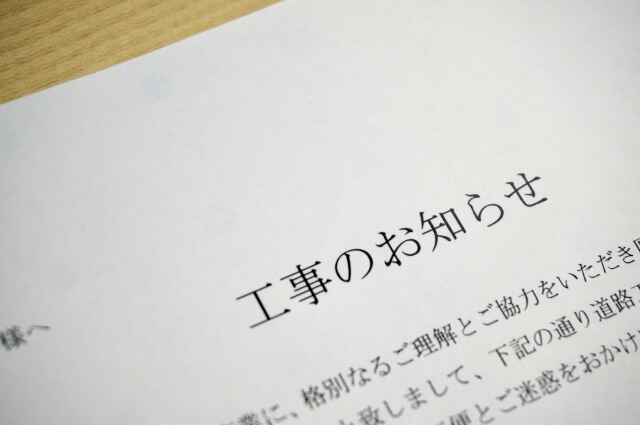 様へ
工事のお知らせ
業に、格別なるご理解とご協力をいただき
と致しまして、下記の通り道路工
便とご迷惑をおかけ